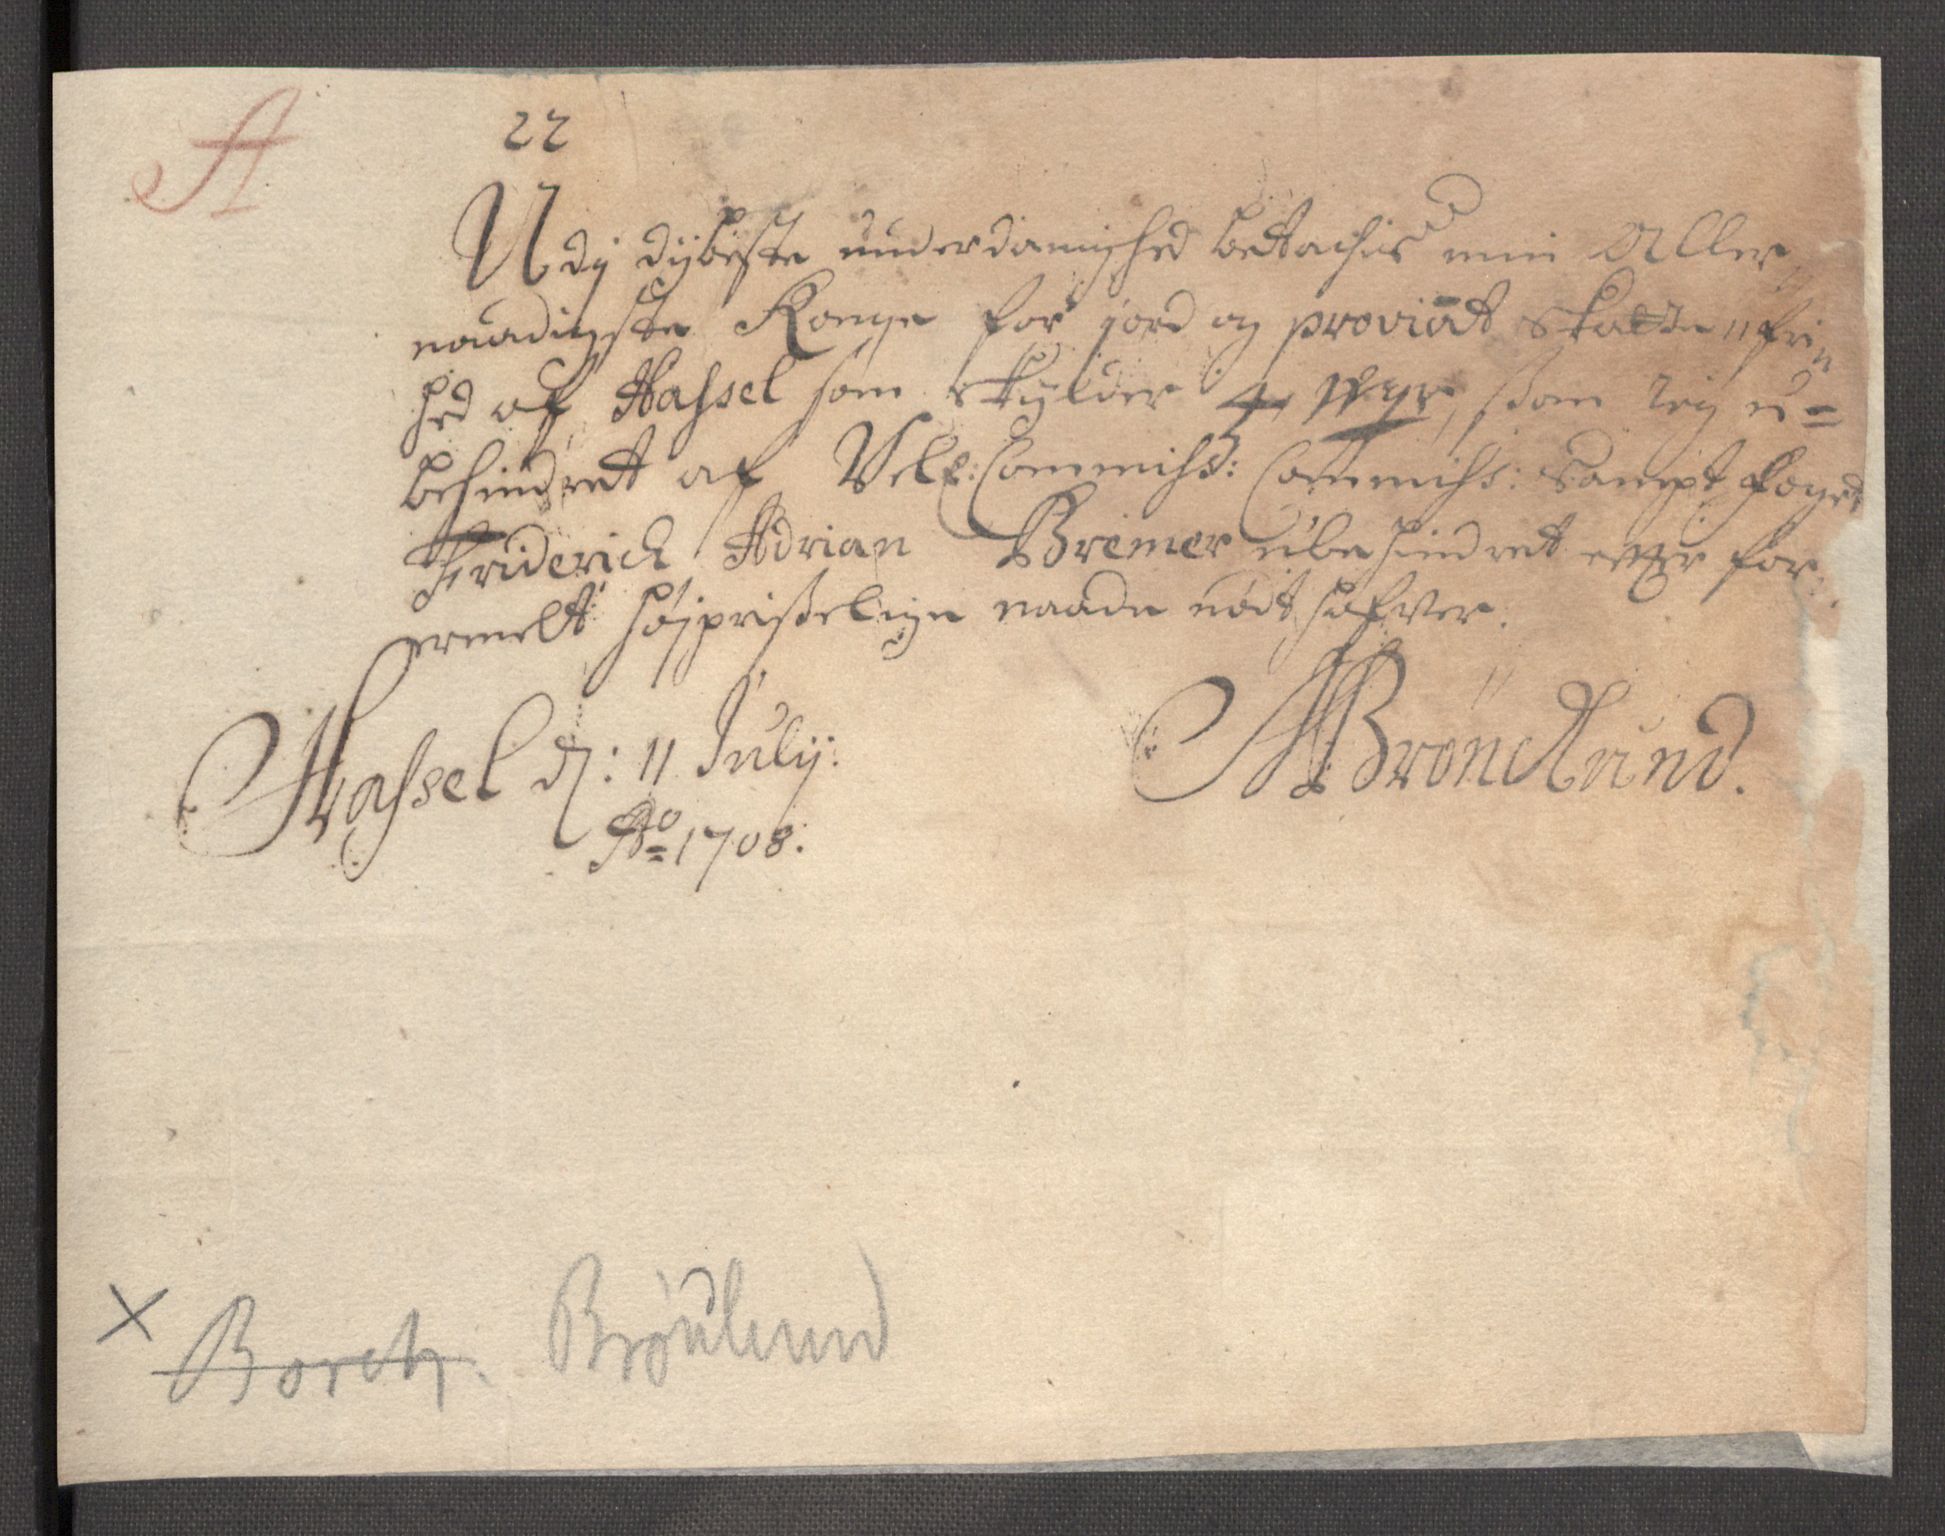 A
22
Udj dijbeste underdanighed betachis min Aller
naadigste Konge for jord og proviāt skatters fri
hed af Hassel som skylder 4 , som Jeg u=
behindret af Velb: Commiss: Commiss: sampt foget
Friderich Adrian Bremer ubehindret efter for
ermelt højprisselige naade nødt hafver.
Hassel d: 11 Julij:
Ao 1708.
Brønlund.
x Borch. Brønlund